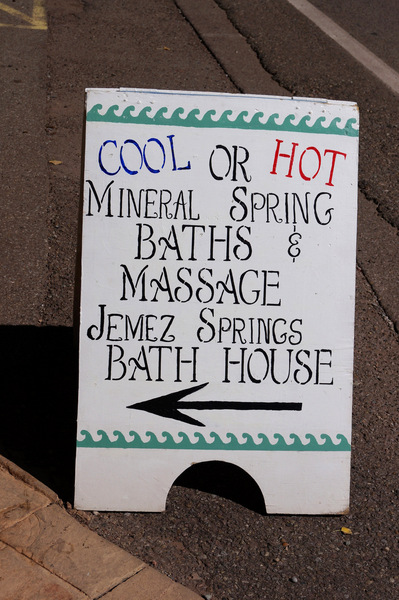 COOL OR HOT
MINERAL SPRING
BATHS &
MASSAGE
JEMEZ SPRINGS
BATH HOUSE